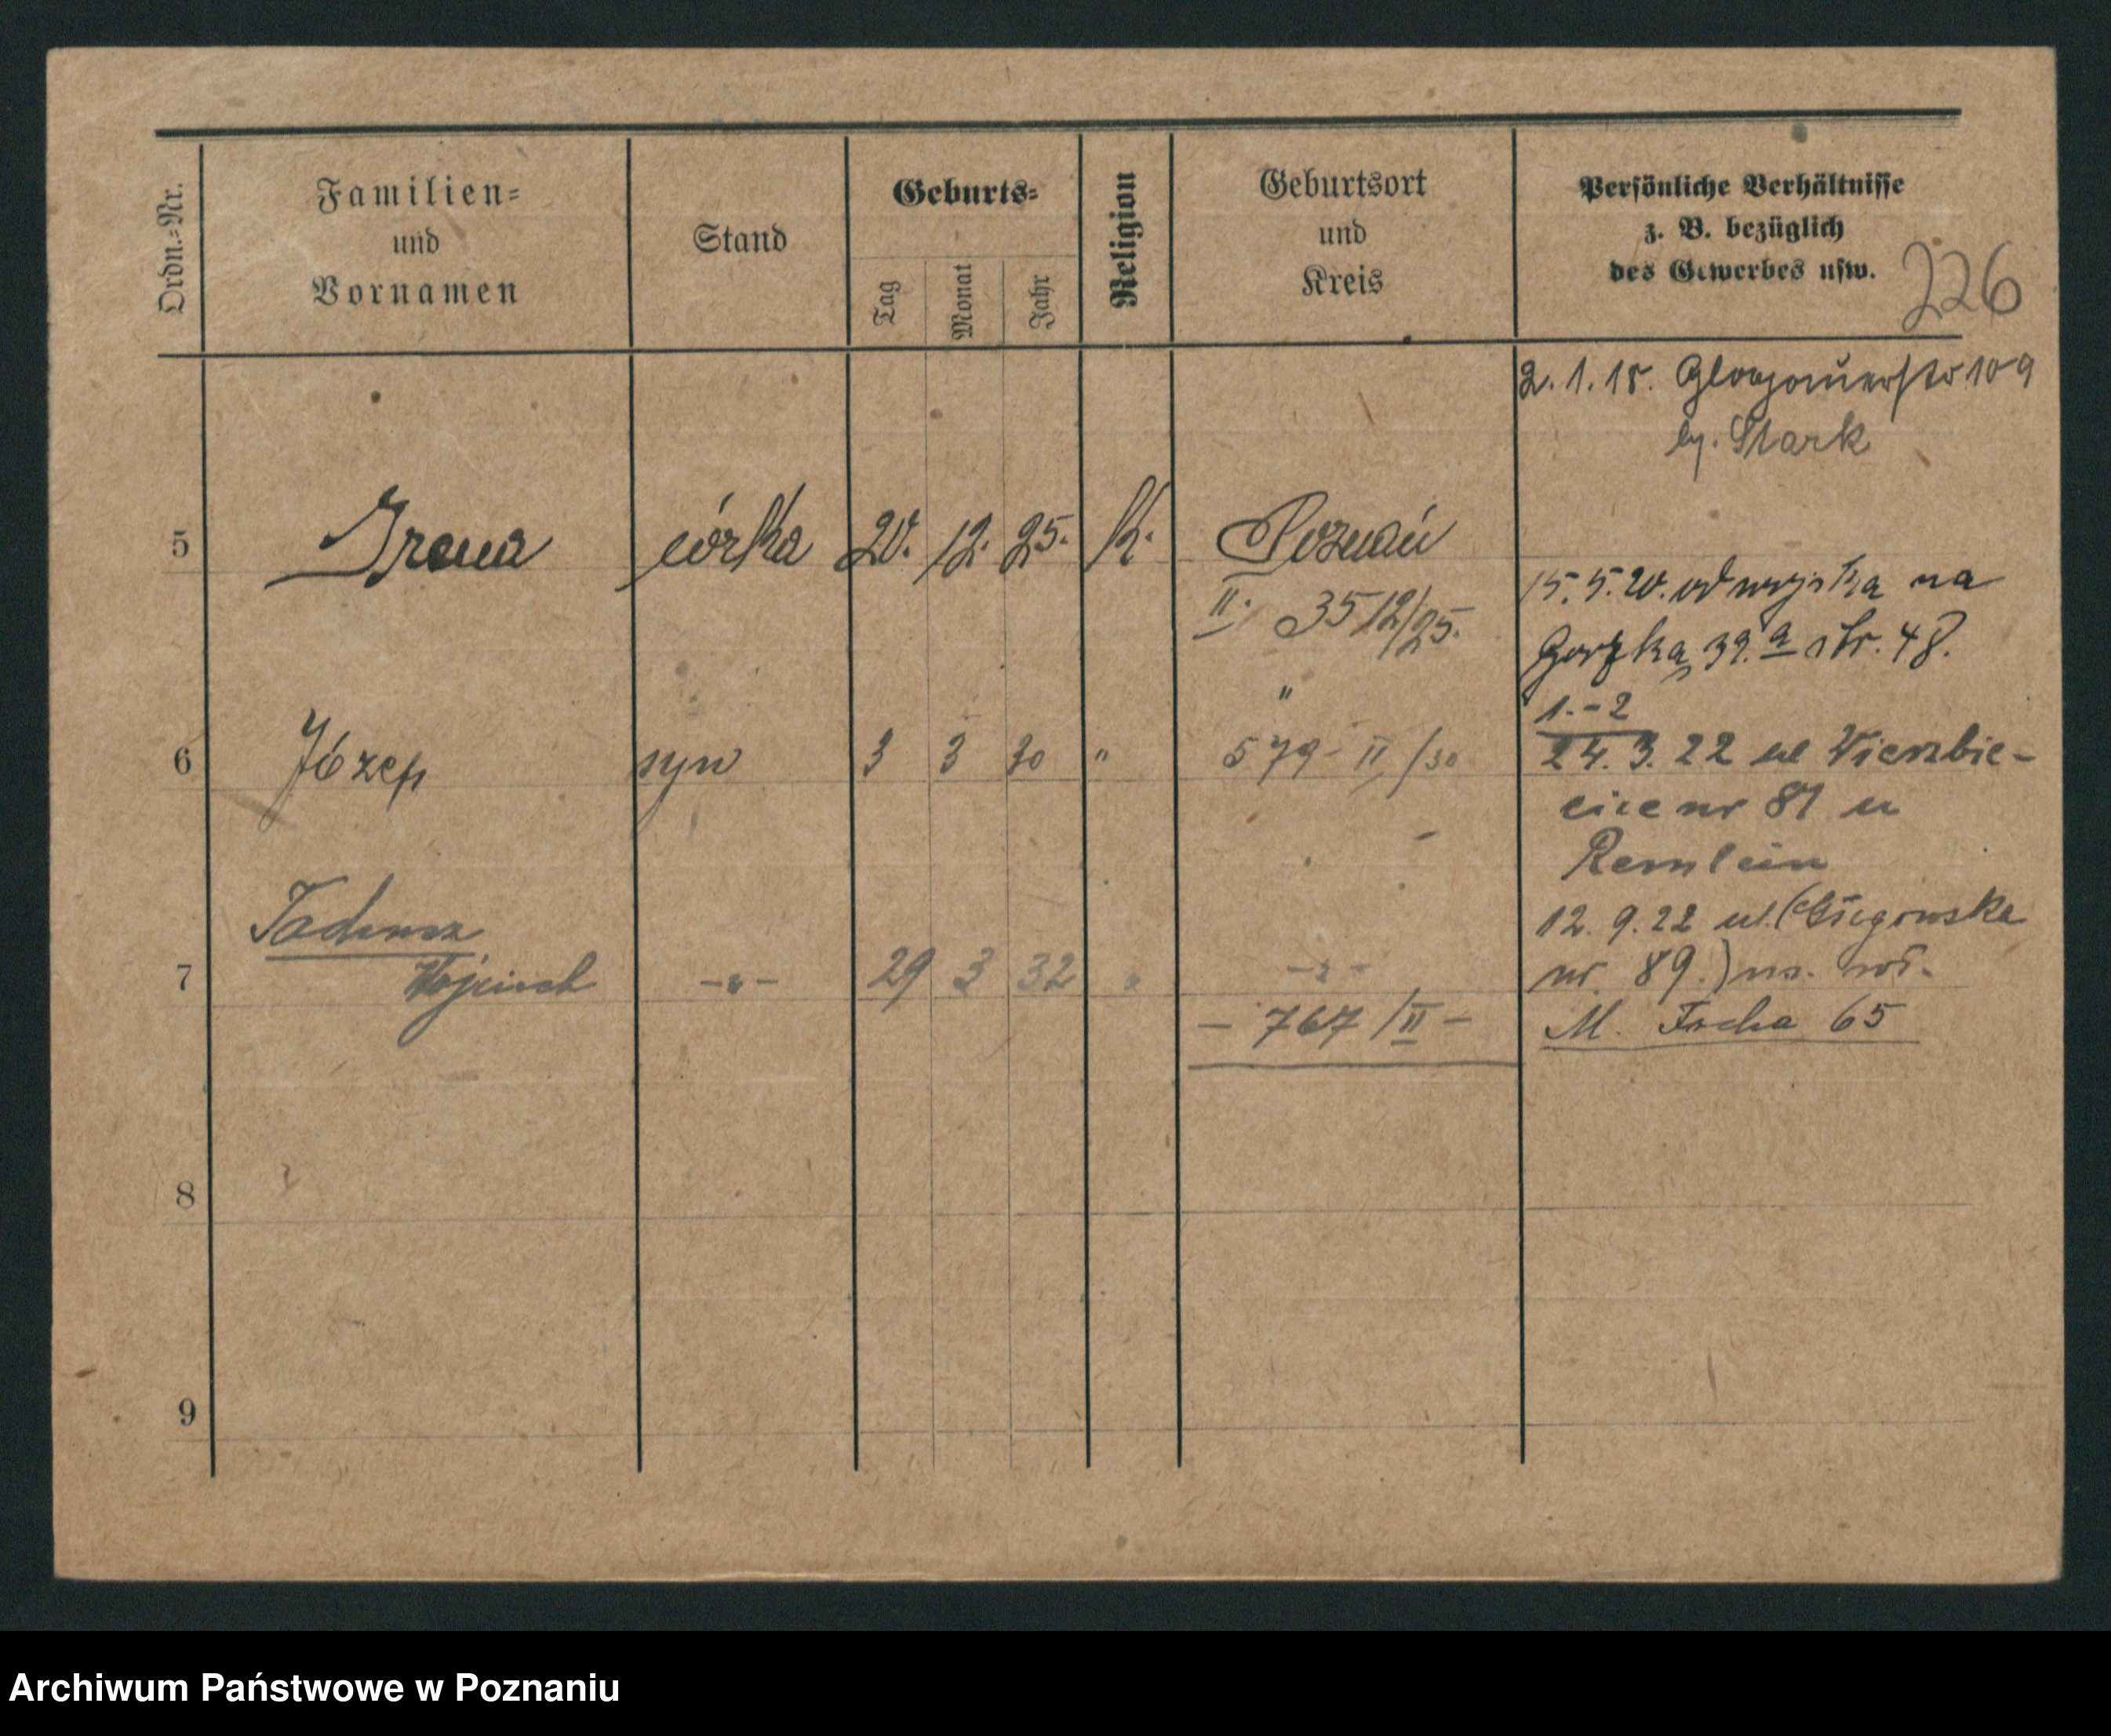 Ordn.=Nr.
Familien=
und
Vornamen
Stand
Geburts=
Tag
Monat
Jahr
Religion
Geburtsort
und
Kreis
Persönliche Verhältnisse
z. B. bezüglich
des Gewerbes usw.
226
2. 1. 18. Glogauerstr 109
by. Stark
5 Irena córka 20. 12. 25. K. Poznań
II. 3512/25.
15. 5. 20. od wojska na
39.a str. 48.
1. - 2
6 Józef syn 3 3 30 " "
579 - II /30
24. 3. 22 ul Wierzbie-
cice nr 81 u
Remlein
7 Tadeusz
Wojciech -"- 29 3 32 " -"-
- 767 / II -
12. 9. 22 ul. (Głogowska
nr. 89.)
M. Focha 65
8
9
Archiwum Państwowe w Poznaniu